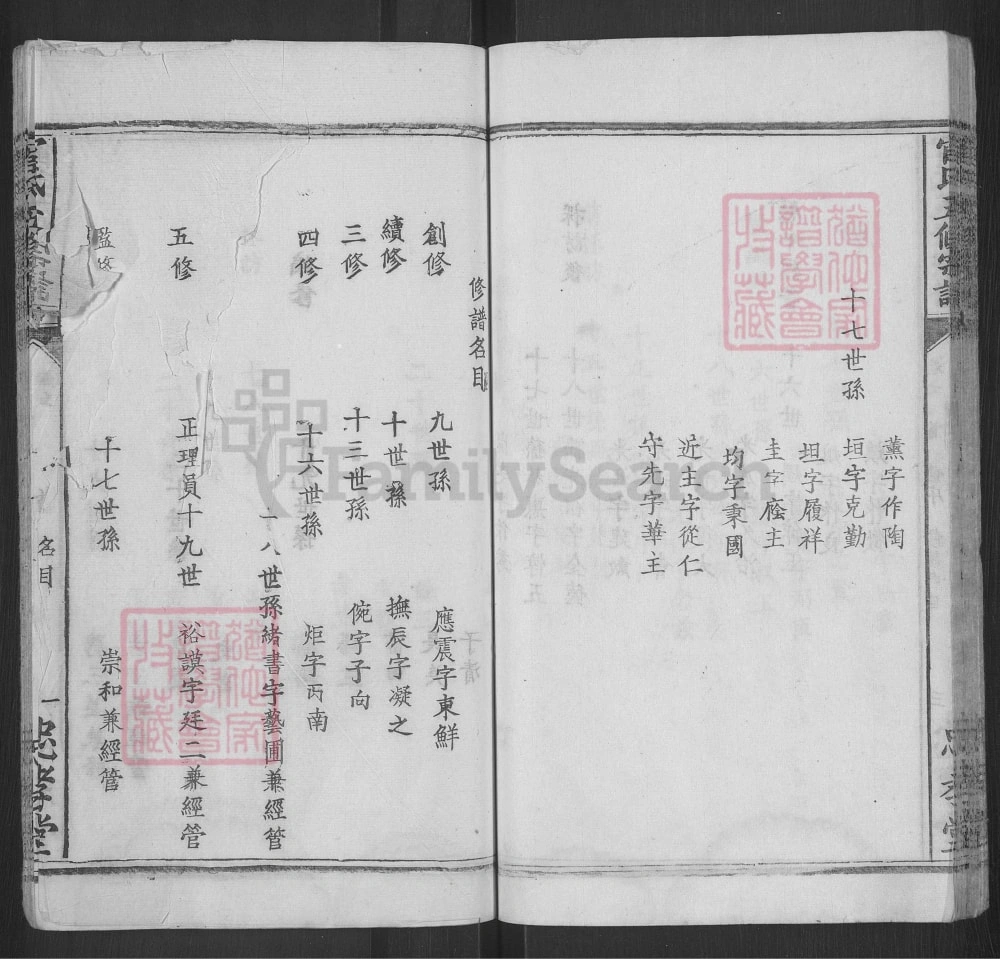 十七世孫
薰字作陶
垣字克勤
坦字履祥
圭字蔭主
均字秉國
近主字從仁
守先字華主
修譜名目
創修 九世孫 應震字東鮮
續修 十世孫 撫辰字凝之
三修 十三世孫 俺字子向
四修 十六世孫 炬字丙南
十八世孫緒書字藝圃兼經管
五修 正理員十九世 裕謨字廷二兼經管
監修 十七世孫 崇和兼經管
名目 一
忠孝堂
FamilySearch